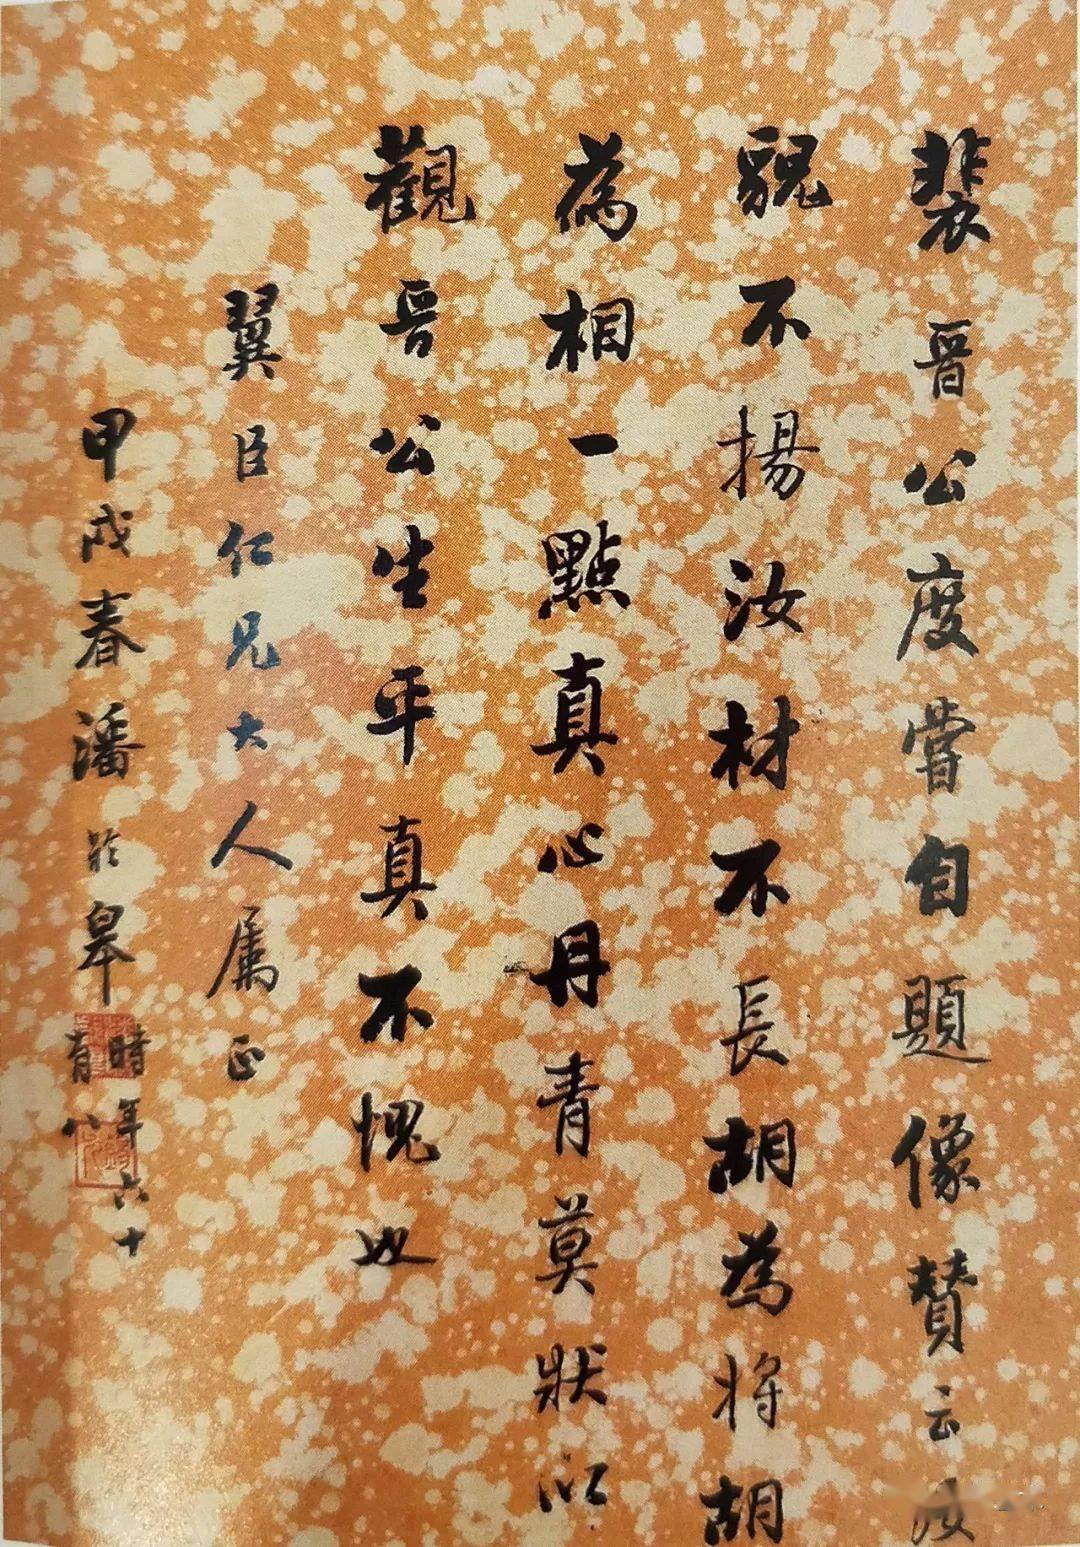 裴晉公度嘗自題像贊云汝
貌不揚汝材不長胡為將胡
為相一點真心丹青莫狀以
觀晉公生平真不愧也
翼臣仁兄大人屬正
甲戌春潘齡皋
時年六十
有八